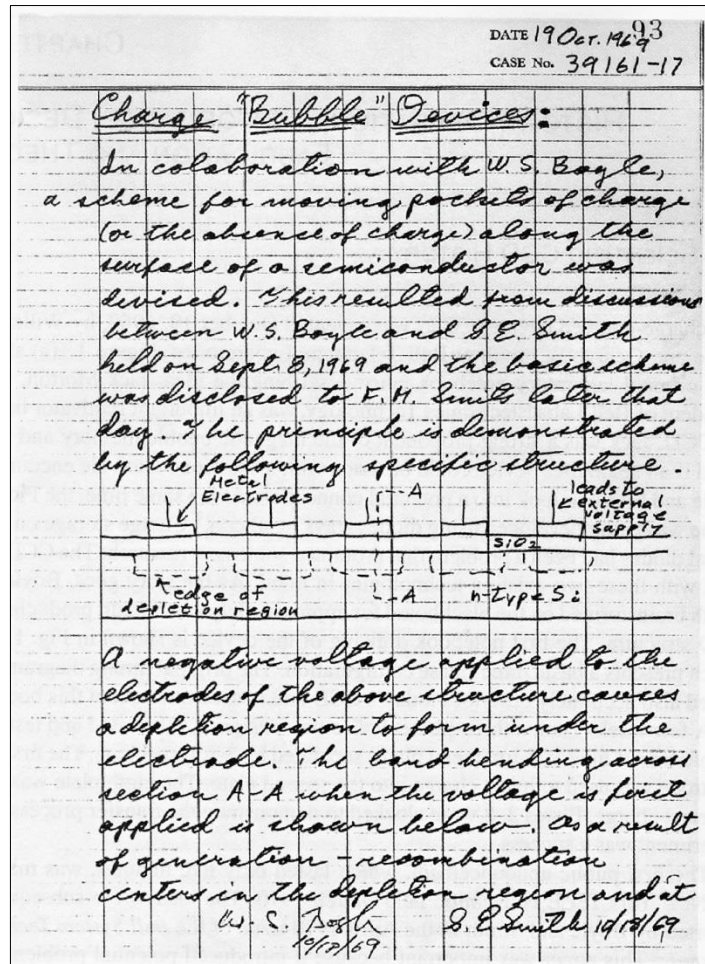 93
DATE 19 Oct. 1969
CASE No. 39161-17
Charge "Bubble" Devices:
In colaboration with W. S. Boyle,
a scheme for moving pockets of charge
(or the absence of charge) along the
surface of a semiconductor was
devised. This resulted from discussions
between W. S. Boyle and G E. Smith
held on Sept. 8, 1969 and the basic scheme
was disclosed to F. M. Smits later that
day. The principle is demonstrated
by the following specific structure.
Metal
Electrodes
A
leads to
external
voltage
supply
SiO2
edge of
depletion region
A
n-type Si
A negative voltage applied to the
electrodes of the above structure causes
a depletion region to form under the
electrode. The band bending across
section A-A when the voltage is first
applied is shown below. As a result
of generation - recombination
centers in the depletion region and at
W. S. Boyle
G. E Smith